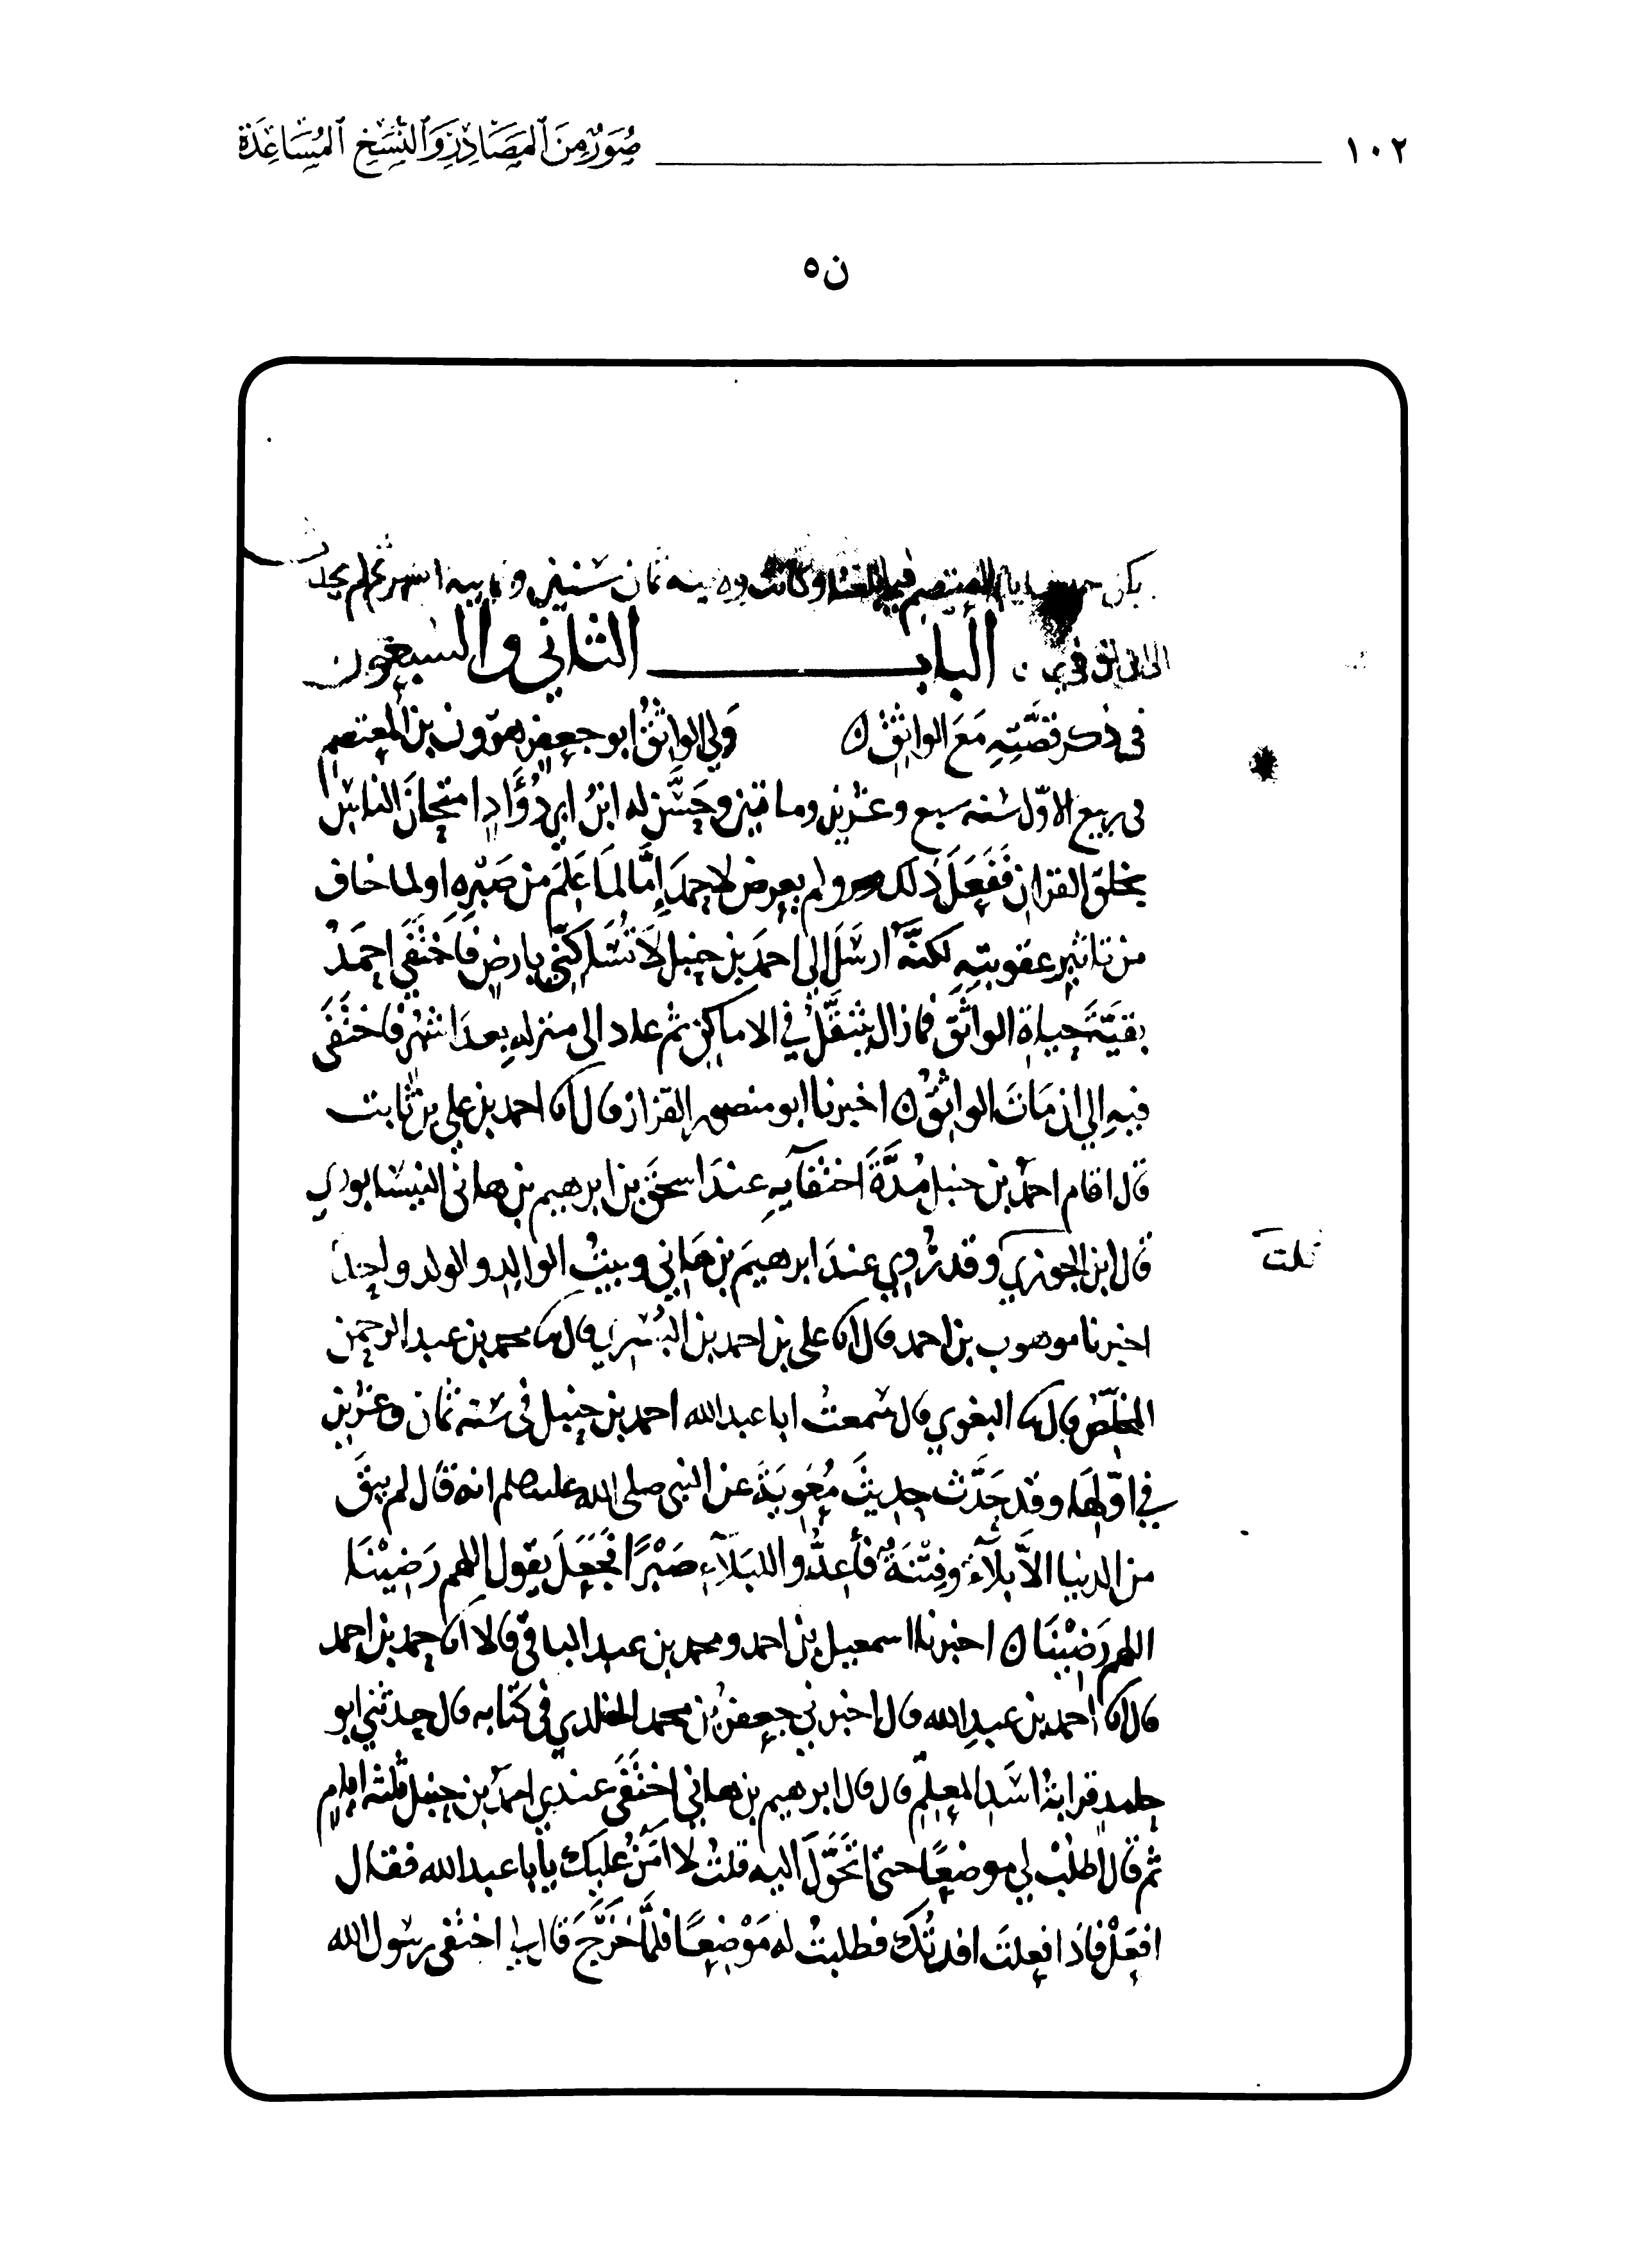 ١٠٢ صُوَرٌ مِنَ ٱلمَصَادِرِ وَٱلنُّسَخِ ٱلمُسَاعِدَة
ن٥
المعتصم فيما بلغنا وكانت ثمان سنين وثمانيه اشهر
الباب الثاني والسبعون
فى ذكر قصَّتِهِ مَعَ الواثِقِ ن وَلي الواثقُ ابو جعفر هرون بن المعتصم
فى ربيع الاوّل سنه سبع وعشرين ومائتين وحَسَّن له ابنُ ابي دُؤَادٍ امتحانَ الناس
بخلق القران فَفَعَلَ ذلك ولم يعرض لاحمدَ إمَّا لمَا عَلِمَ من صَبْرِه او لما خاف
من تاثير عقوبتِهِ لكنَّه ارسَلَ إلى احمدَ بن حنبل لَا تُسَاكِنِّي بارضٍ فَاختَفَى احمَدُ
بقيَّةَ حياة الواثَق فما زال يتنقَّلُ في الاماكِنِ ثم عاد الى منزلهِ بعدَ اشهُرٍ فاختَفَى
فيهِ إلى ان مَاتَ الواثقُ ن اخبرنا ابو منصور القزاز قال انا احمد بن علي بن ثابت
قال اقام احمد بن حنبل مُدَّةَ اختفَآيهِ عندَ اسحَق بن ابرهيم بن هانى النيسابوري
قال ابن الجوزي وقد رُوِي عندَ ابرهيمَ بن هَانِي وبيتُ الوالِدِ والولد واحِدٌ
قلت
اخبرنا موهوب بن احمد قال انا على بن احمد بن البُسْرِي قال نا محمد بن عبد الرحمن
المخلِّصُ قال نا البغوي قال سَمعتُ ابا عبد الله احمد بن حنبل فى سَنه ثمان وعشرين
في اوَّلِهَا وقد حَدَّثَ حديثَ مُعٰوِيَةَ عن النبى صلى الله عليه وسلم انه قَال لم يبقَ
من الدنيا الاّ بَلَآءٌ وفِتْنَةٌ فأعِدُّوا للبَلآءِ صَبْرًا فَجَعَلَ يقول اللهم رَضِيْنَا
اللهم رَضِيْنَا ن اخبرنا اسمعيل بن احمد ومحمد بن عبد الباقى قالا انا حمد بن احمد
قال انا احمد بن عبد الله قال اخبرني جعفر بن محمد الخلدي فى كتابه قال حدثني ابو
حامدٍ قرابةُ اسَدِ المعلِّمِ قال قال ابرهيم بن هانى اختَفَى عندي احمد بن حنبل ثلثه ايام
ثم قال اطلُبْ لي موضعًا حتى اتحَوَّلَ اليه قلتُ لا امَنُ عليك يا با عبد الله فقال
افعَلْ فاذا فعلتَ افدتُكَ فطلبتُ له مَوْضِعًا فلمَّا خَرَجَ قال لى اختفى رسول الله